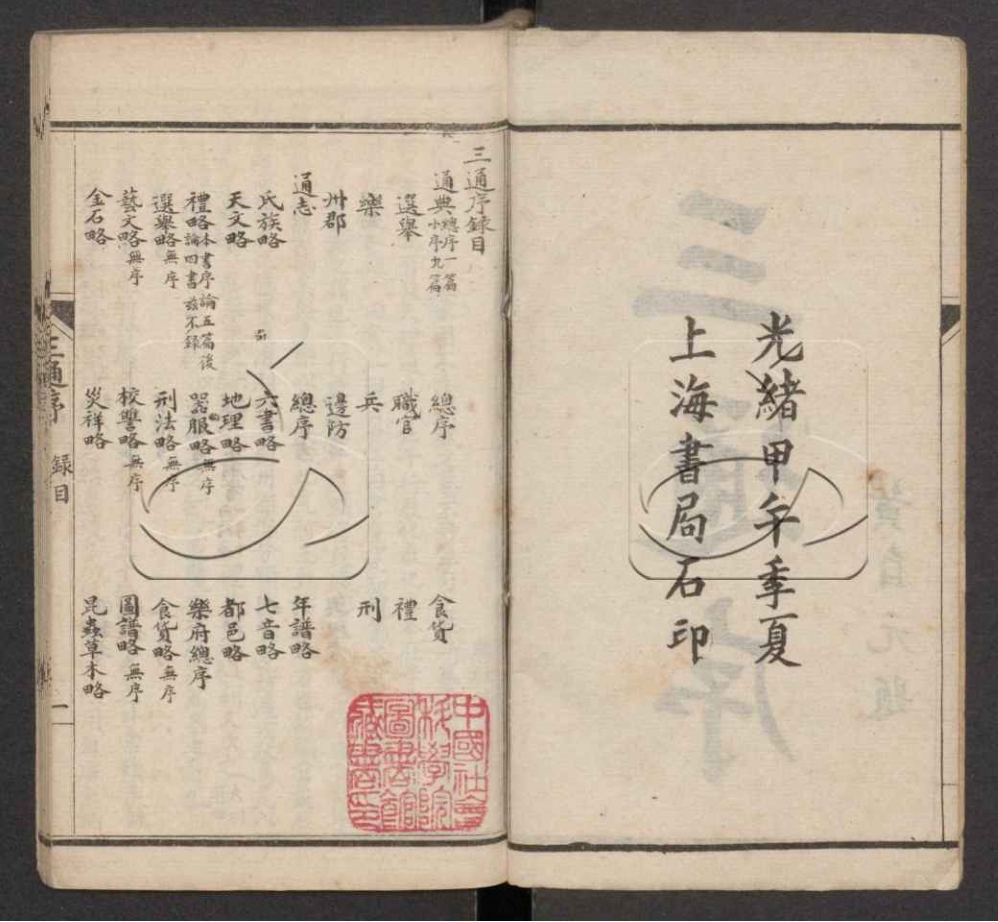 光緒甲午季夏
上海書局石印
三通序錄目
通典總序一篇小序九篇 總序 食貨
選舉 職官 禮
樂 兵 刑
州郡 邊防
通志 總序 年譜略
氏族略 六書略 七音略
天文略 地理略 都邑略
禮略本書序論五篇後論四書茲不錄 器服略無序 樂府總序
選舉略無序 刑法略無序 食貨略無序
藝文略無序 校讐略無序 圖譜略無序
金石略 災祥略 昆蟲草木略
三通序 錄目 一
中國社會科學院圖書館藏書印